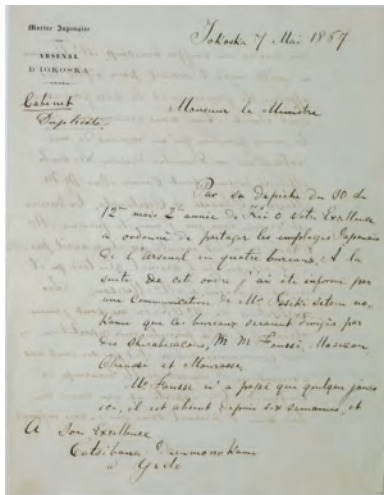 Marine Japonaise
ARSENAL
D'IOKOSKA
Iokoska 7 Mai 1867
Cabinet
Duplicata.
Monsieur le Ministre
Par sa depêche du 30 du
12me mois 2e année de Kei o Votre Excellence
a ordonné de partager les employés Japonais
de l'arsenal en quatre bureaux. A la
suite de cet ordre j'ai été informé par
une communication de Mr
Kami que ces bureaux seraient dirigés par
des M. M.
et
Mr n'a passé que quelques jours
ici, il est absent depuis six semaines, et
A Son Excellence
à Yedo